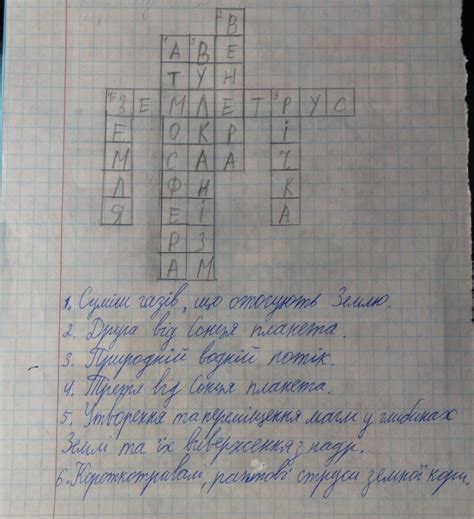 2 В
1 А 5 В Е
Т У Н
4 6 З Е М Л Е Т 3 Р У С
Е О К Р І
М С А А Ч
Л Ф Н К
Я Е І А
Р З
А М
1. Суміш газів, що отогують Землю.
2. Друга від Сонця планета.
3. Природній водній потік.
4. Третя від Сонця планета.
5. Утворення та переміщення магм у глибинах
Землі та їх виверження з надр.
6. Короткотривалі, раптові струси земної кори.